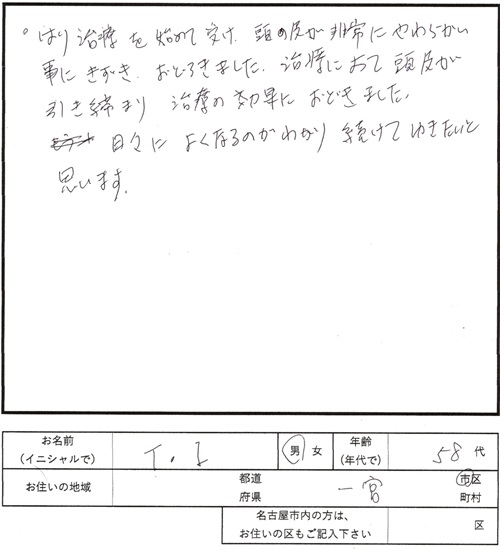 。はり治療を始めて受け、頭の皮が非常にやわらかい
事にきずき、おどろきました。治療において頭皮が
引き締まり 治療の効果におどきました。
日々によくなるのがわかり 続けてゆきたいと
思います。
お名前
(イニシャルで)
T.I
男 女
年齢
(年代で)
58 代
お住いの地域
都道
府県
一宮
市区
町村
名古屋市内の方は、
お住いの区もご記入下さい
区